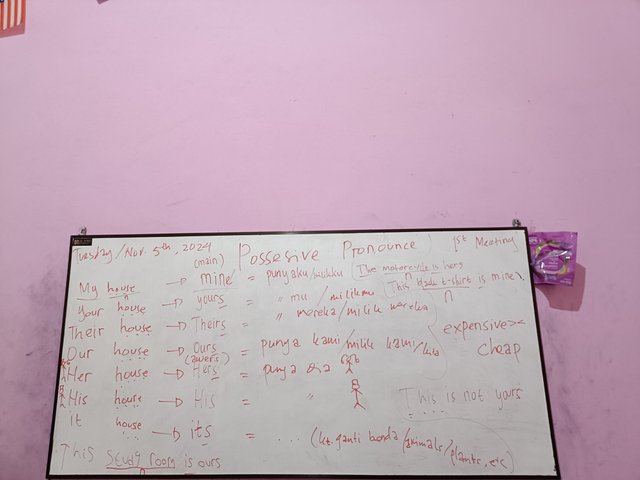 Tuesday/Nov. 5th, 2024 Possesive Pronounce 1st Meeting
(main)
My house → mine = punyaku/milikku The motorcycle is hers
Your house → yours = " mu / milikmu This black t-shirt is mine
n
Their house → Theirs = " mereka/milik mereka
expensive ><
cheap
Our house → Ours = punya kami/milik kami/kita
(awers)
Her house → Hers = punya dia
His house → His " This is not yours
It house → its = ... (kt. ganti benda/animals/plants, etc)
This study room is ours
n